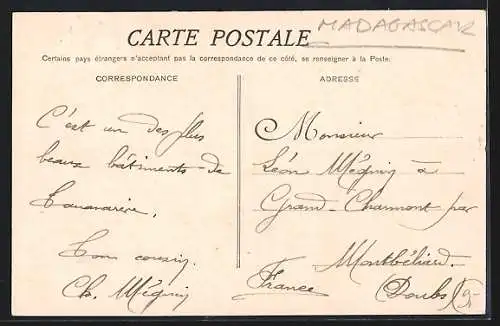 MADAGASCAR
CARTE POSTALE
Certains pays étrangers n'acceptant pas la correspondance de ce côté, se renseigner à la Poste.
CORRESPONDANCE
C'est un des plus
beaux bâtiments de
Tananarive.
Ton cousin,
Ch. Méquin
ADRESSE
Monsieur
Léon Méquin à
Grand-Charmont par
Montbéliard.
France (Doubs)